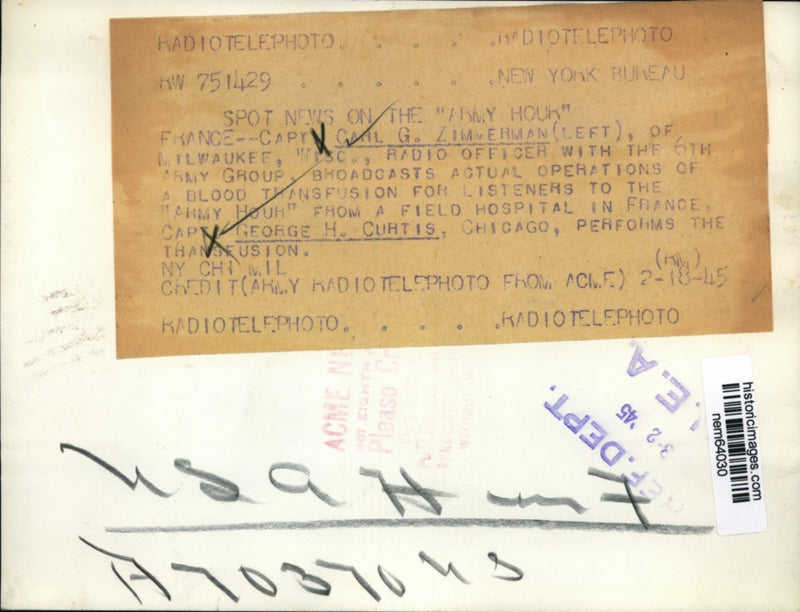 RADIOTELEPHOTO. . . . . .RADIOTELEPHOTO
RW 751429 . . . . . .NEW YORK BUREAU
SPOT NEWS ON THE "ARMY HOUR"
FRANCE--CAPT. CARL G. ZIMMERMAN(LEFT), OF
MILWAUKEE, WISC., RADIO OFFICER WITH THE 6TH
ARMY GROUP, BROADCASTS ACTUAL OPERATIONS OF
A BLOOD TRANSFUSION FOR LISTENERS TO THE
"ARMY HOUR" FROM A FIELD HOSPITAL IN FRANCE.
CAPT. GEORGE H. CURTIS, CHICAGO, PERFORMS THE
TRANSFUSION.
NY CHI MIL (RM)
CREDIT(ARMY RADIOTELEPHOTO FROM ACME) 2-18-45
RADIOTELEPHOTO. . . . .RADIOTELEPHOTO
ACME
EIGHTH
Please
REF. DEPT.
3-2 '45
E. A.
historicimages.com
nem64030